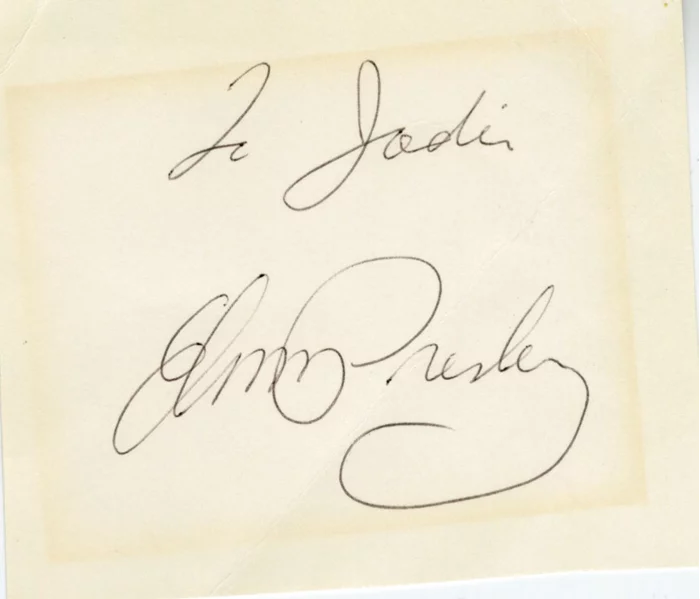 To Jodie
Elvis Presley